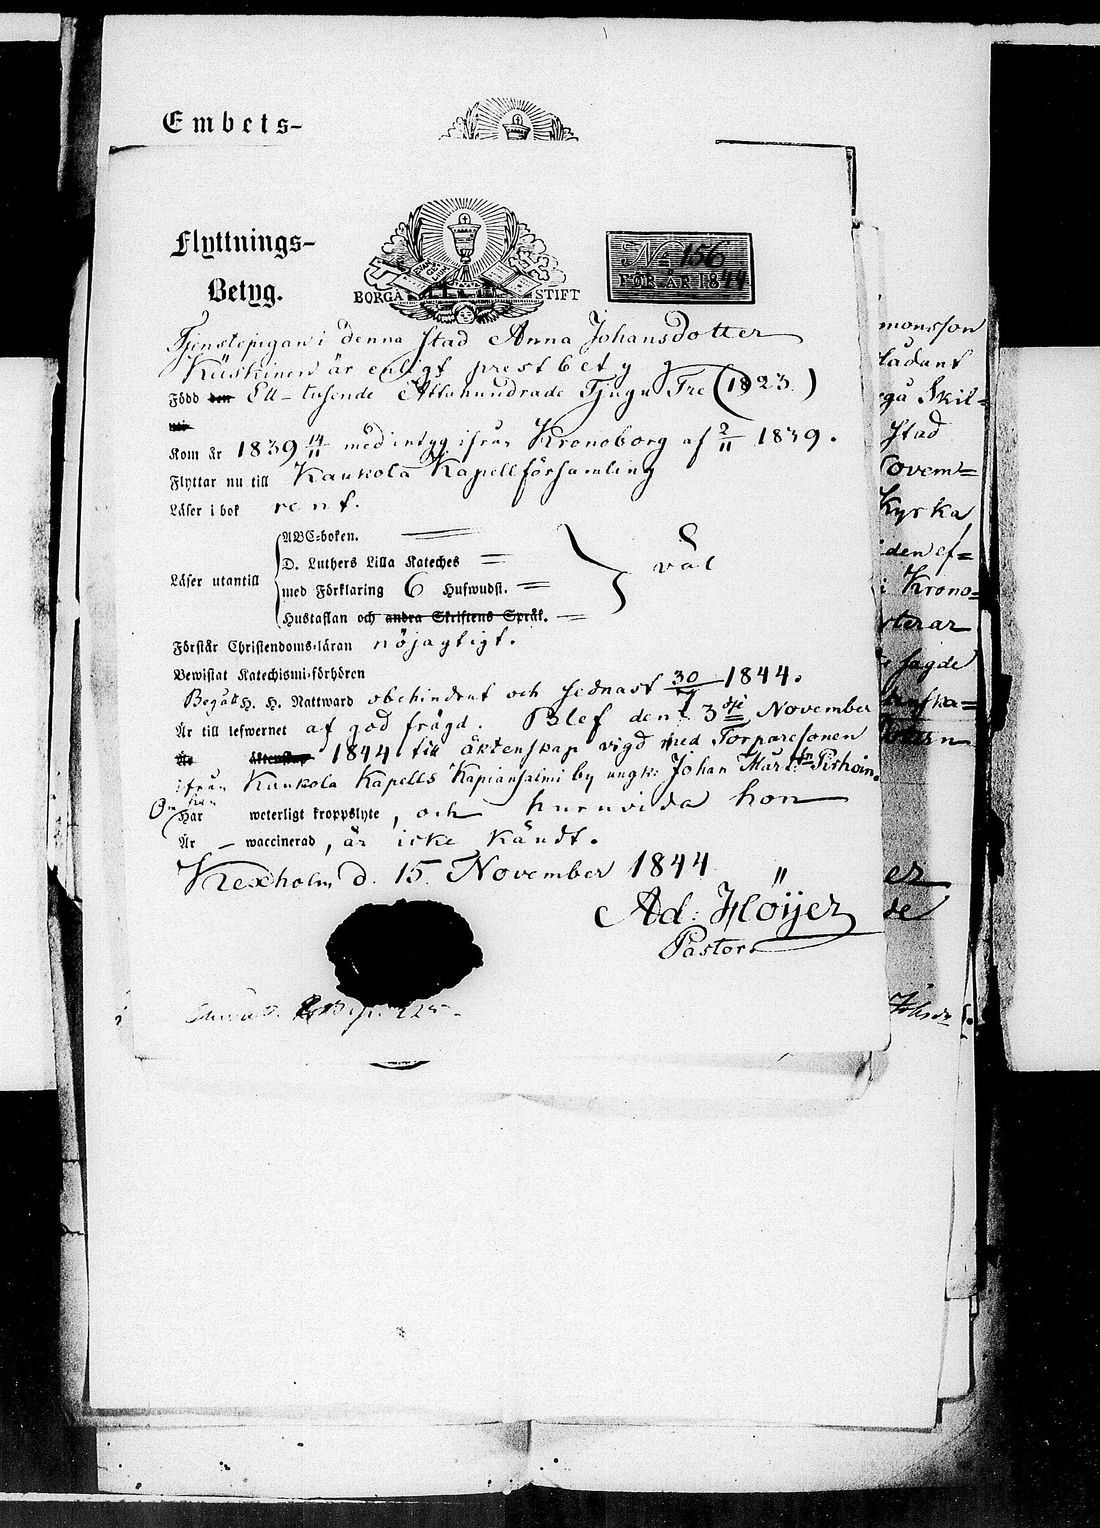 Embets-
Flyttnings-
Betyg.
BORGÅ STIFT
No 156
FÖR ÅR 1844
Tjenstepigan i denna stad Anna Johansdotter
Kiiskinen är enligt prestbetyg
Född den Ett-tusende Åttahundrade Tjugu Tre (1823.)
Kom år 1839 14/11 med intyg ifrån Kronoborg af 2/11 1839.
Flyttar nu till Kaukola Kapellförsamling
Läser i bok rent.
Läser utantill
ABC-boken.
D. Luthers Lilla Kateches
med Förklaring 6 Hufwudst.
Hustaflan och andra Skriftens Språk.
väl
Förstår Christendoms-läran nöjagtigt.
Bewistat Katechismi-förhören
Begått H. H. Nattward obehindrat och sednast 30 1844.
Är till lefwernet af god frägd. Blef den 3dje November
Är äktenskap 1844 till äktenskap vigd med Torparesonen
ifrån Kaukola Kapells Kapiansalmi by ungk: Johan
Om hon
Har weterligt kroppslyte, och huruvida hon
Är - waccinerad, är icke kändt.
Kexholm d. 15 November 1844
Ad: Höijer
Pastor
monsson
ådant
Skil=
stad
ovem=
Kyrka
den ef=
i Krono=
sagde
er
de